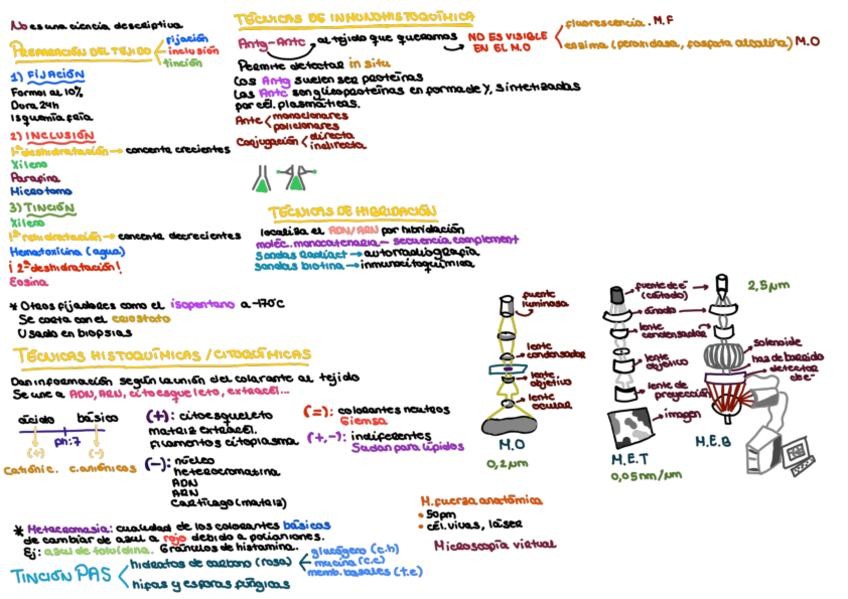 No es una ciencia descriptiva
PREPARACIÓN DEL TEJIDO
fijación
inclusión
tinción
1) FIJACIÓN
Formol al 10%
Dura 24h
Isquemia fría
2) INCLUSIÓN
1ª deshidratación → concentr crecientes
Xileno
Parafina
Microtomo
3) TINCIÓN
Xileno
1ª rehidratación → concentr decrecientes
Hematoxilina (agua)
¡ 2ª deshidratación !
Eosina
* Otros fijadores como el isopentano a -170ºC
Se corta con el criostato
Usado en biopsias
TÉCNICAS HISTOQUÍMICAS / CITOQUÍMICAS
Dan información según la unión del colorante al tejido
Se une a ADN, ARN, citoesqueleto, extracel...
ácido básico
ph: 7
(+) (-)
Catiónic. c. aniónicos
(+): citoesqueleto
matriz extracel.
filamentos citoplasma
(-): núcleo
heterocromatina
ADN
ARN
Cartílago (matriz)
(=): colorantes neutros
Giemsa
(+,-): indiferentes
Sudan para lípidos
* Metacromasia: cualidad de los colorantes básicos
de cambiar de azul a rojo debido a polianiones.
Ej: azul de toluidina. Gránulos de histamina.
TINCIÓN PAS
hidratos de carbono (rosa)
glucógeno (c.h)
mucina (c.c)
memb. basales (t.e)
hifas y esporas fúngicas
TÉCNICAS DE INMUNOHISTOQUÍMICA
Antg-Antc al tejido que queramos → NO ES VISIBLE
EN EL M.O
fluorescencia. M.F
enzima (peroxidasa, fosfata alcalina) M.O
Permite detectar in situ
Los Antg suelen ser proteínas
Las Antc son glucoproteínas en forma de Y, sintetizadas
por cél. plasmáticas.
Antc
monoclonares
policlonares
Conjugación
directa
indirecta
TÉCNICAS DE HIBRIDACIÓN
localiza el ADN/ARN por hibridación
moléc. monocatenaria — secuencia complement
Sondas radiact → autorradiografía
sondas biotina → inmunocitoquímica
fuente
luminosa
lente
condensador
lente
objetivo
lente
ocular
M.O
0,2 µm
fuente de e⁻
(cátodo)
ánodo
lente
condensador
lente
objetivo
lente de
proyección
imagen
M.E.T
0,05 nm/µm
2,5 µm
solenoide
haz de barrido
detector
de e⁻
M.E.B
M. fuerza anatómica
• 50pm
• cél. vivas, láser
Microscopía virtual